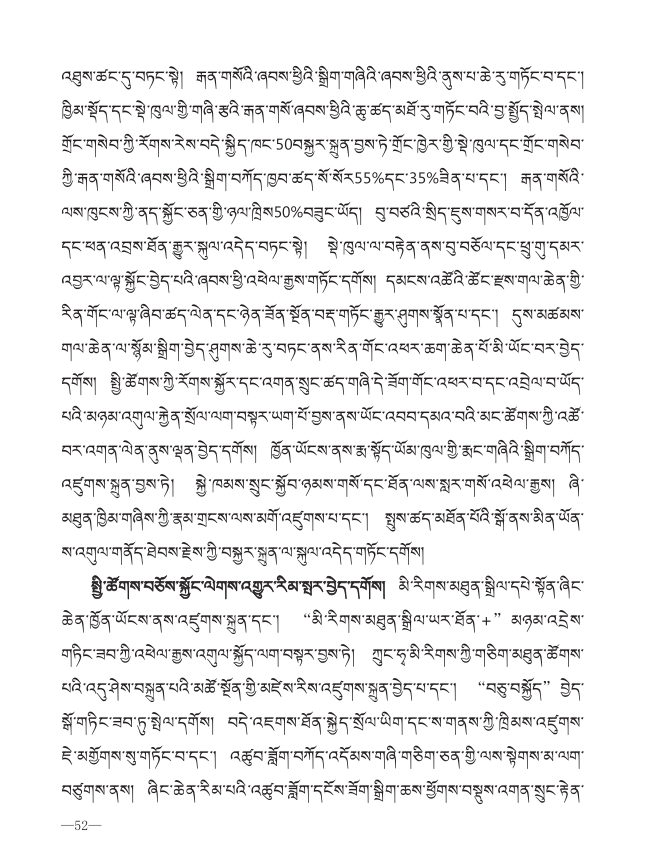 འཐུས་ཚང་དུ་བཏང་སྟེ། རྒན་གསོའི་ཞབས་ཕྱིའི་སྒྲིག་གཞིའི་ཞབས་ཕྱིའི་ནུས་པ་ཆེ་རུ་གཏོང་བ་དང་།
ཁྱིམ་སྡོད་དང་སྡེ་ཁུལ་གྱི་གཞི་རྩའི་རྒན་གསོ་ཞབས་ཕྱིའི་ཆུ་ཚད་མཐོ་རུ་གཏོང་བའི་བྱ་སྤྱོད་སྤེལ་ནས།
གྲོང་གསེབ་ཀྱི་རོགས་རེས་བདེ་སྐྱིད་ཁང་50བསྐྱར་སྐྲུན་བྱས་ཏེ་གྲོང་ཁྱེར་གྱི་སྡེ་ཁུལ་དང་གྲོང་གསེབ་
ཀྱི་རྒན་གསོའི་ཞབས་ཕྱིའི་སྒྲིག་བཀོད་ཁྱབ་ཚད་སོ་སོར55%དང་35%ཟིན་པ་དང་། རྒན་གསོའི་
ལས་ཁུངས་ཀྱི་ནད་སྐྱོང་ཅན་གྱི་ཉལ་ཁྲིས50%བཟུང་ཡོད། བུ་བཙའི་སྲིད་ཇུས་གསར་བ་དོན་འཁྱོལ་
དང་ཕན་འབྲས་ཐོན་རྒྱུར་སྐུལ་འདེད་བཏང་སྟེ། སྡེ་ཁུལ་ལ་བརྟེན་ནས་བུ་བཅོལ་དང་ཕྲུ་གུ་དམར་
འབྱར་ལ་ལྟ་སྐྱོང་བྱེད་པའི་ཞབས་ཕྱི་འཕེལ་རྒྱས་གཏོང་དགོས། དམངས་འཚོའི་ཚོང་རྫས་གལ་ཆེན་གྱི་
རིན་གོང་ལ་ལྟ་ཞིབ་ཚད་ལེན་དང་ཉེན་ཟོན་སྔོན་བརྡ་གཏོང་རྒྱུར་ཤུགས་སྣོན་པ་དང་། དུས་མཚམས་
གལ་ཆེན་ལ་སྙོམ་སྒྲིག་བྱེད་ཤུགས་ཆེ་རུ་བཏང་ནས་རིན་གོང་འཕར་ཆག་ཆེན་པོ་མི་ཡོང་བར་བྱེད་
དགོས། སྤྱི་ཚོགས་ཀྱི་རོགས་སྐྱོར་དང་འགན་སྲུང་ཚད་གཞི་དེ་ཟོག་གོང་འཕར་བ་དང་འབྲེལ་བ་ཡོད་
པའི་མཉམ་འགུལ་རྐྱེན་སྲོལ་ལག་བསྟར་ཡག་པོ་བྱས་ནས་ཡོང་འབབ་དམའ་བའི་མང་ཚོགས་ཀྱི་འཚོ་
བར་འགན་ལེན་ནུས་ལྡན་བྱེད་དགོས། ཁྱོན་ཡོངས་ནས་རྨ་སྟོད་ཡོམ་ཁུལ་གྱི་རྨང་གཞིའི་སྒྲིག་བཀོད་
འཛུགས་སྐྲུན་བྱས་ཏེ། སྐྱེ་ཁམས་སྲུང་སྐྱོབ་ཉམས་གསོ་དང་ཐོན་ལས་སླར་གསོ་འཕེལ་རྒྱས། ཞི་
མཐུན་ཁྱིམ་གཞིས་ཀྱི་རྣམ་གྲངས་ལས་མགོ་འཛུགས་པ་དང་། སྤུས་ཚད་མཐོན་པོའི་སྒོ་ནས་མིན་ཡོན་
ས་འགུལ་གནོད་ཐེབས་རྗེས་ཀྱི་བསྐྱར་སྐྲུན་ལ་སྐུལ་འདེད་གཏོང་དགོས།
སྤྱི་ཚོགས་བཅོས་སྐྱོང་ལེགས་འགྱུར་རིམ་སྤར་བྱེད་དགོས། མི་རིགས་མཐུན་སྒྲིལ་དཔེ་སྟོན་ཞིང་
ཆེན་ཁྱོན་ཡོངས་ནས་འཛུགས་སྐྲུན་དང་། “མི་རིགས་མཐུན་སྒྲིལ་ཡར་ཐོན་+” མཉམ་འདྲེས་
གཏིང་ཟབ་ཀྱི་འཕེལ་རྒྱས་འགུལ་སྐྱོད་ལག་བསྟར་བྱས་ཏེ། ཀྲུང་ཧྭ་མི་རིགས་ཀྱི་གཅིག་མཐུན་ཚོགས་
པའི་འདུ་ཤེས་བསྐྲུན་པའི་མཚོ་སྔོན་གྱི་མཛེས་རིས་འཛུགས་སྐྲུན་བྱེད་པ་དང་། “བཅུ་བསྐྱོད” བྱེད་
སྒོ་གཏིང་ཟབ་ཏུ་སྤེལ་དགོས། བདེ་འཇགས་ཐོན་སྐྱེད་སྲོལ་ཡིག་དང་ས་གནས་ཀྱི་ཁྲིམས་འཛུགས་
ཇེ་མགྱོགས་སུ་གཏོང་བ་དང་། འཚུབ་ཟློག་བཀོད་འདོམས་གཞི་གཅིག་ཅན་གྱི་ལས་སྟེགས་མ་ལག་
བཙུགས་ནས། ཞིང་ཆེན་རིམ་པའི་འཚུབ་ཟློག་དངོས་ཟོག་སྒྲིག་ཆས་ཕྱོགས་བསྡུས་འགན་སྲུང་རྟེན་
—52—